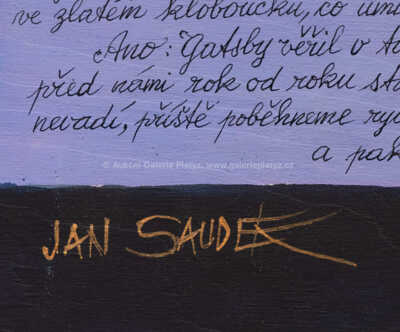 ve zlatém kloboučku, co um
Ano: Gatsby věřil v
před námi rok od roku
nevadí, příště poběhneme
a pak
© Aukční Galerie Platýz, www.galerieplatyz.cz
JAN SAUDEK